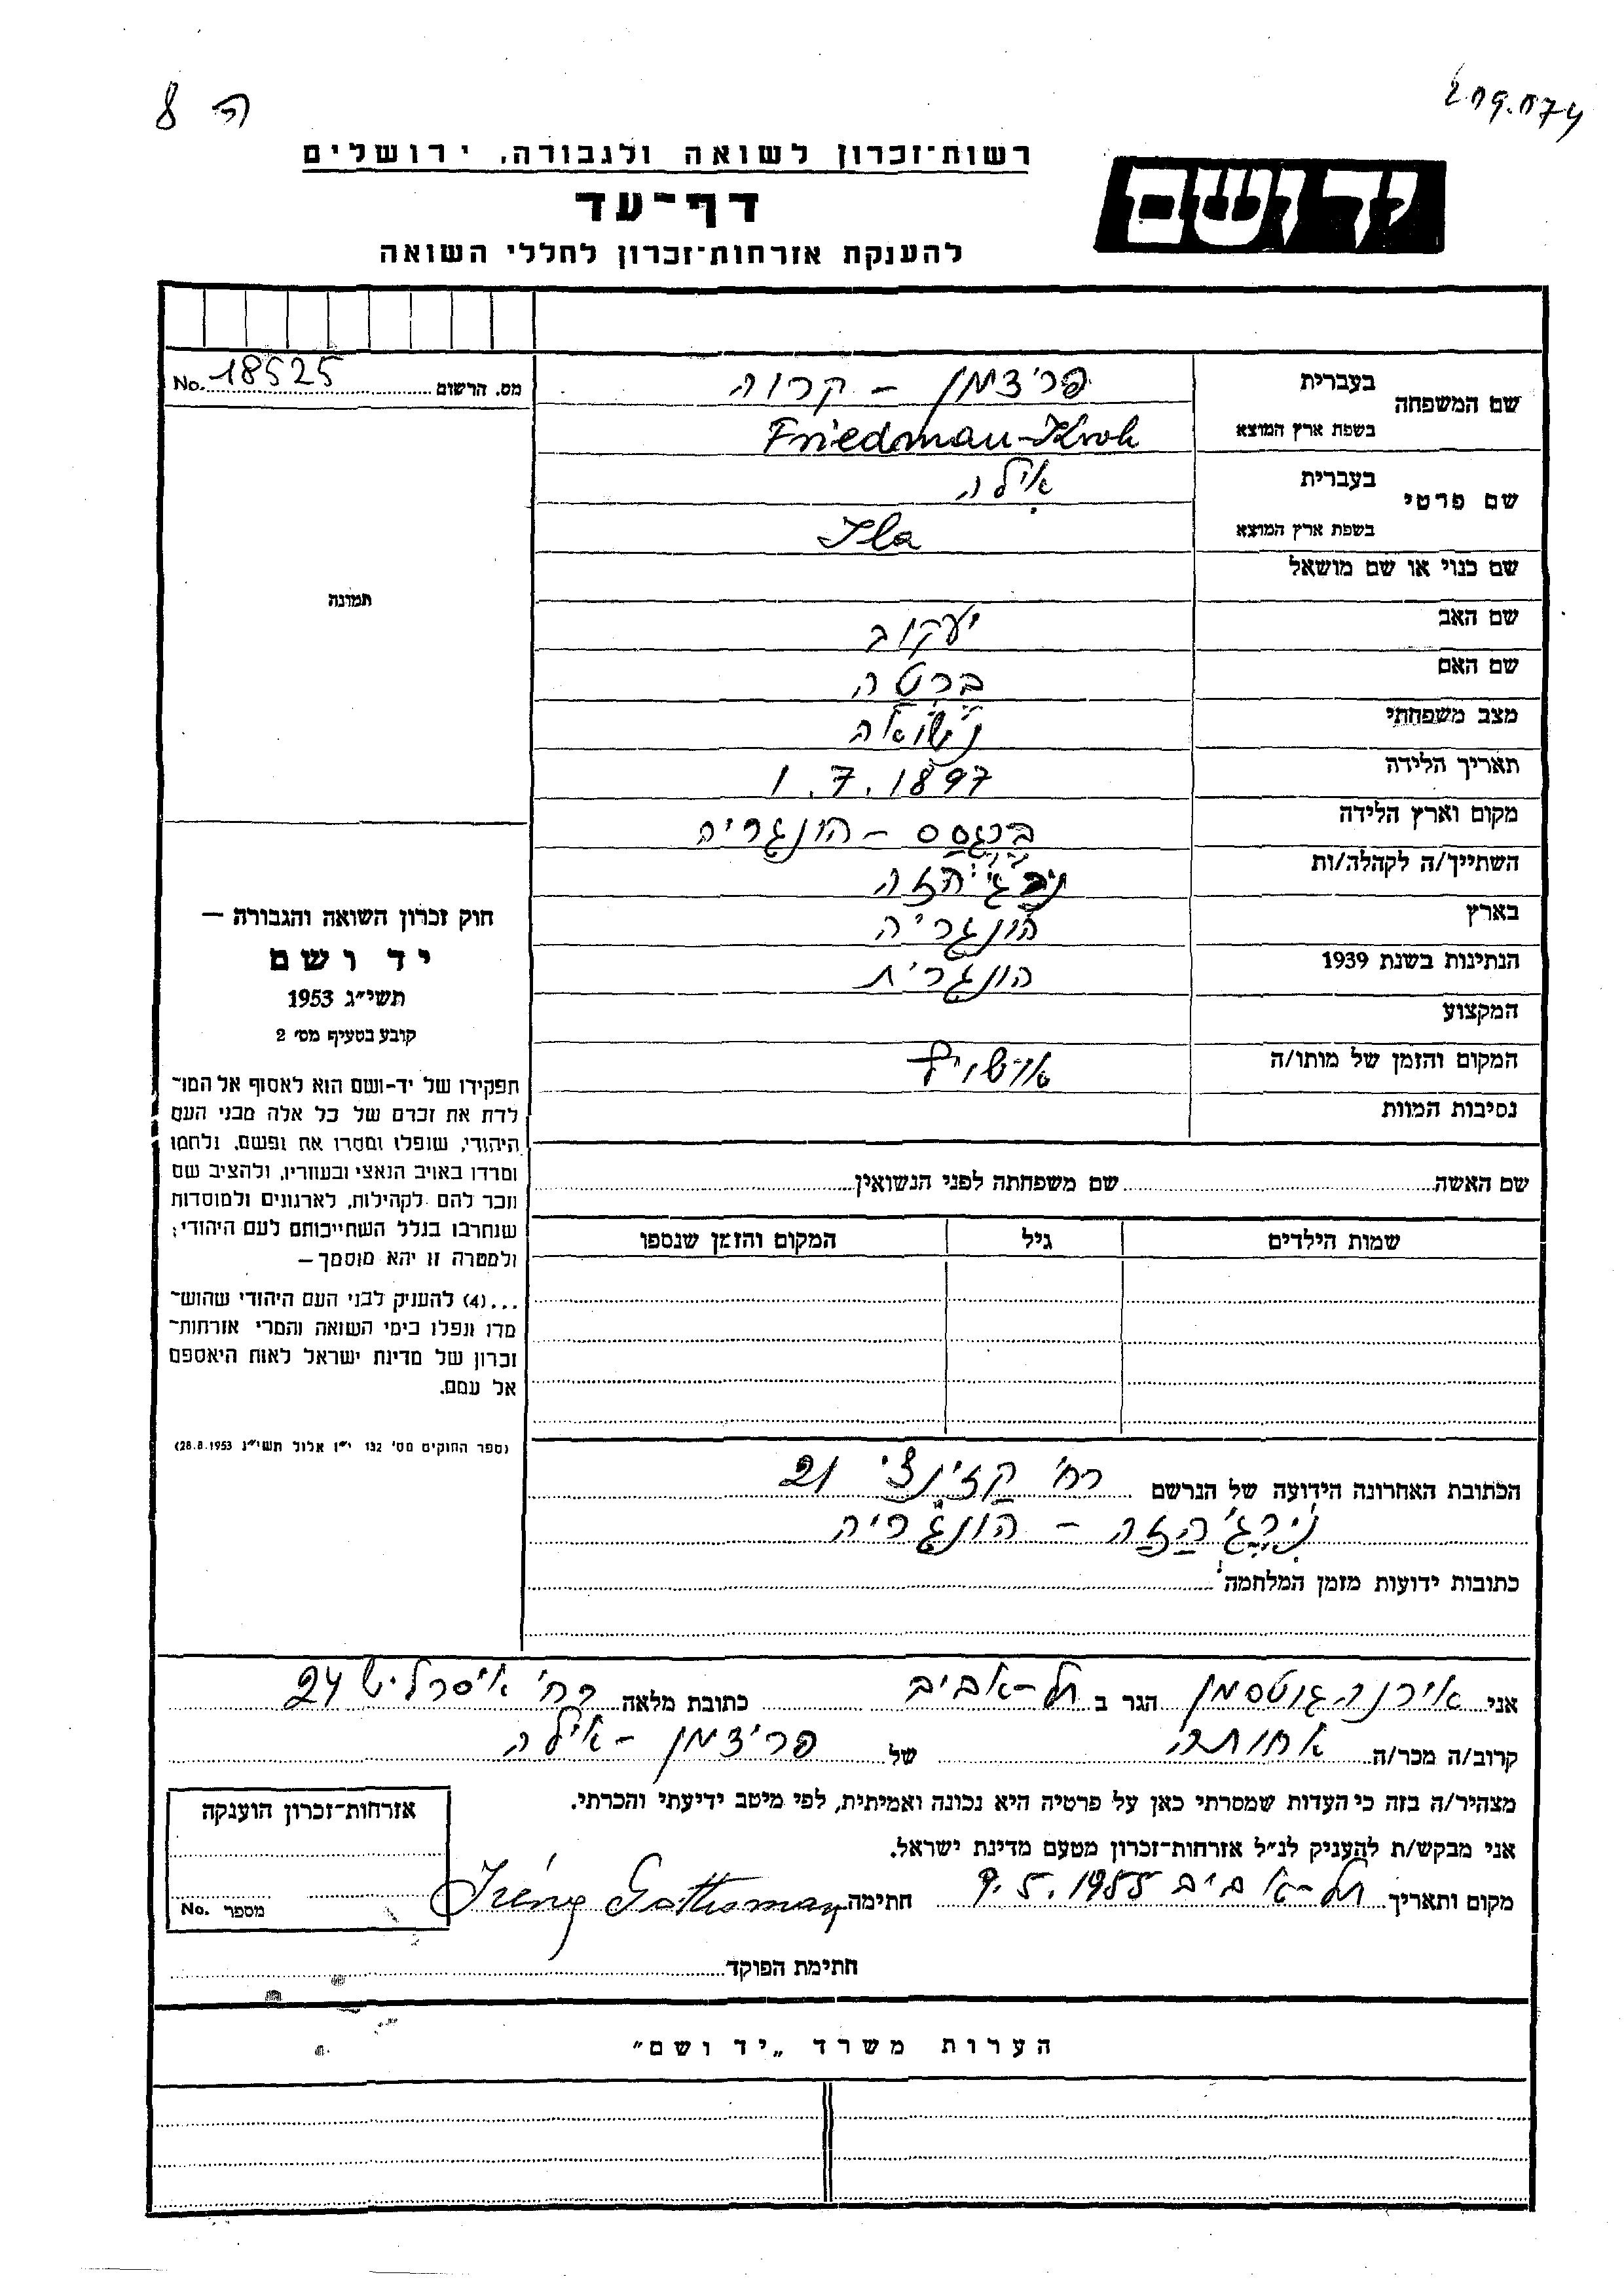 8 ה
209.074
רשות־זכרון לשואה ולגבורה, ירושלים
יד ושם
דף־עד
להענקת אזרחות־זכרון לחללי השואה
מס. הרשום No. 18525
שם המשפחה בעברית פרידמן - קרוה
בשפת ארץ המוצא Friedman-Kroh
שם פרטי בעברית אילה
בשפת ארץ המוצא Ila
שם כנוי או שם מושאל
שם האב יעקוב
שם האם ברטה
מצב משפחתי נישואה
תאריך הלידה 1.7.1897
מקום וארץ הלידה ברגסס - הונגריה
השתייך/ה לקהלה/ות נירגיהזה
בארץ הונגריה
הנתינות בשנת 1939 הונגרית
המקצוע
המקום והזמן של מותו/ה אושויץ
נסיבות המוות
תמונה
חוק זכרון השואה והגבורה —
יד ושם
תשי״ג 1953
קובע בסעיף מס׳ 2
תפקידו של יד-ושם הוא לאסוף אל המו־
לדת את זכרם של כל אלה מבני העם
היהודי, שנפלו ומסרו את נפשם, נלחמו
ומרדו באויב הנאצי ובעוזריו, ולהציב שם
וזכר להם לקהילות, לארגונים ולמוסדות
שנחרבו בגלל השתייכותם לעם היהודי;
ולמטרה זו יהא מוסמך —
...(4) להעניק לבני העם היהודי שהוש־
מדו ונפלו בימי השואה והמרי אזרחות־
זכרון של מדינת ישראל לאות היאספם
אל עמם.
(ספר החוקים מס׳ 132 י״ז אלול תשי״ג 28.8.1953)
שם האשה שם משפחתה לפני הנשואין
שמות הילדים גיל המקום והזמן שנספו
הכתובת האחרונה הידועה של הנרשם רח׳ קזינצי 21
נירג׳הזה - הונגריה
כתובות ידועות מזמן המלחמה
אני אירנה גוטסמן הגר ב תל-אביב כתובת מלאה רח׳ איסרליש 24
קרוב/ה מכר/ה אחותה של פרידמן - אילה
מצהיר/ה בזה כי העדות שמסרתי כאן על פרטיה היא נכונה ואמיתית, לפי מיטב ידיעתי והכרתי.
אני מבקש/ת להעניק לנ״ל אזרחות־זכרון מטעם מדינת ישראל.
מקום ותאריך תל-אביב 9.5.1955 חתימה Iréne Gottesman
אזרחות־זכרון הוענקה
מספר No.
חתימת הפוקד
הערות משרד „יד ושם״